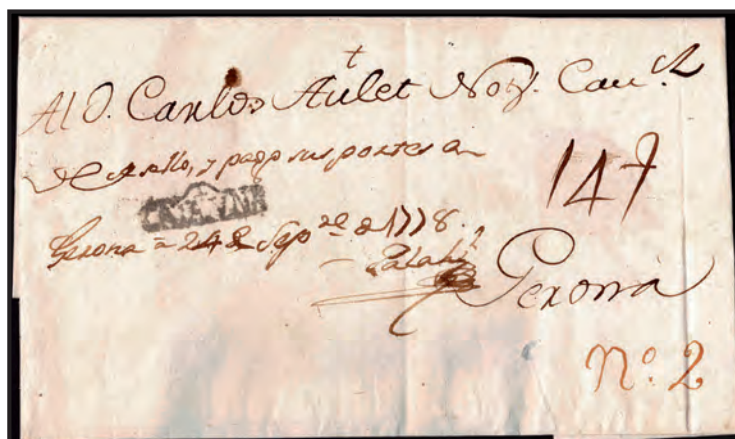 Al D. Carlos Aulet Not.
y pago sus portes
147
CATALUÑA
Gerona = 24 de Sep.re de 1778.
Gerona
N.o 2